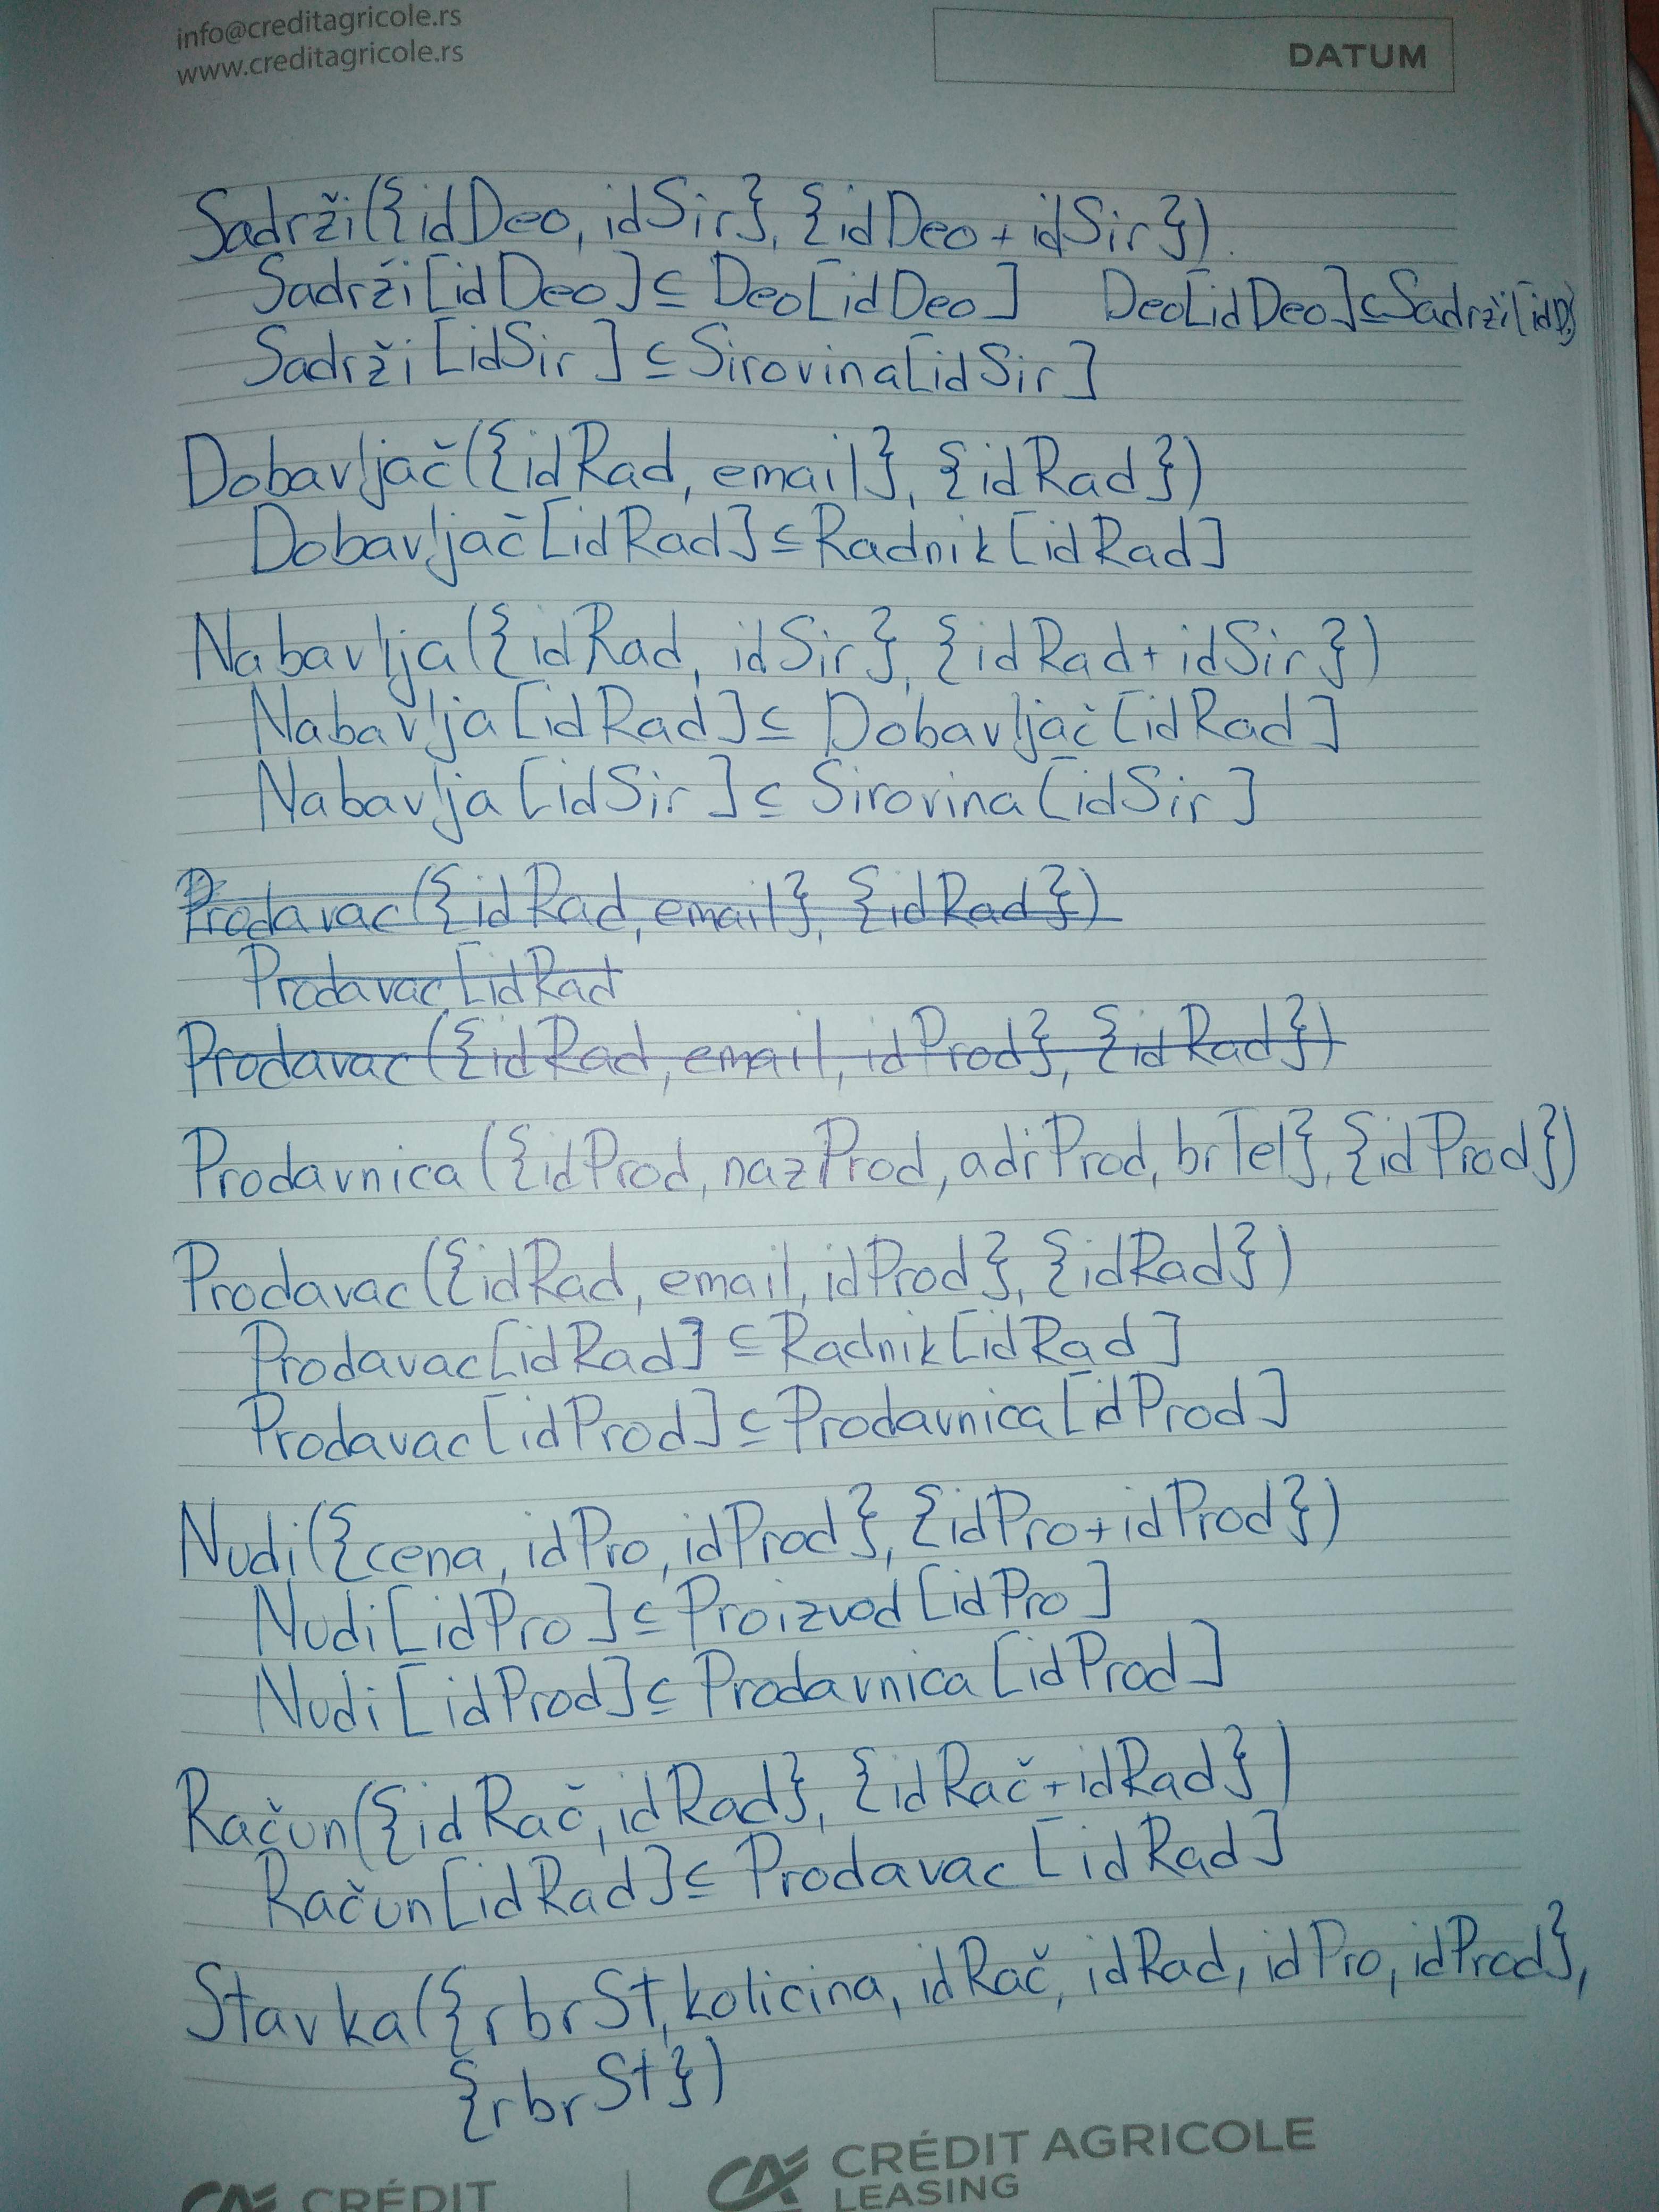 info@creditagricole.rs
www.creditagricole.rs
DATUM
Sadrži({idDeo, idSir}, {idDeo+idSir})
Sadrži[idDeo]⊆Deo[idDeo] Deo[idDeo]⊆Sadrži[idD]
Sadrži[idSir]⊆Sirovina[idSir]
Dobavljač({idRad, email}, {idRad})
Dobavljač[idRad]⊆Radnik[idRad]
Nabavlja({idRad, idSir}, {idRad+idSir})
Nabavlja[idRad]⊆Dobavljač[idRad]
Nabavlja[idSir]⊆Sirovina[idSir]
Prodavac({idRad, email}, {idRad})
Prodavac[idRad
Prodavac({idRad, email, idProd}, {idRad})
Prodavnica({idProd, nazProd, adrProd, brTel}, {idProd})
Prodavac({idRad, email, idProd}, {idRad})
Prodavac[idRad]⊆Radnik[idRad]
Prodavac[idProd]⊆Prodavnica[idProd]
Nudi({cena, idPro, idProd}, {idPro+idProd})
Nudi[idPro]⊆Proizvod[idPro]
Nudi[idProd]⊆Prodavnica[idProd]
Račun({idRač, idRad}, {idRač+idRad})
Račun[idRad]⊆Prodavac[idRad]
Stavka({rbrSt, kolicina, idRač, idRad, idPro, idProd},
{rbrSt})
CRÉDIT
CRÉDIT AGRICOLE
LEASING